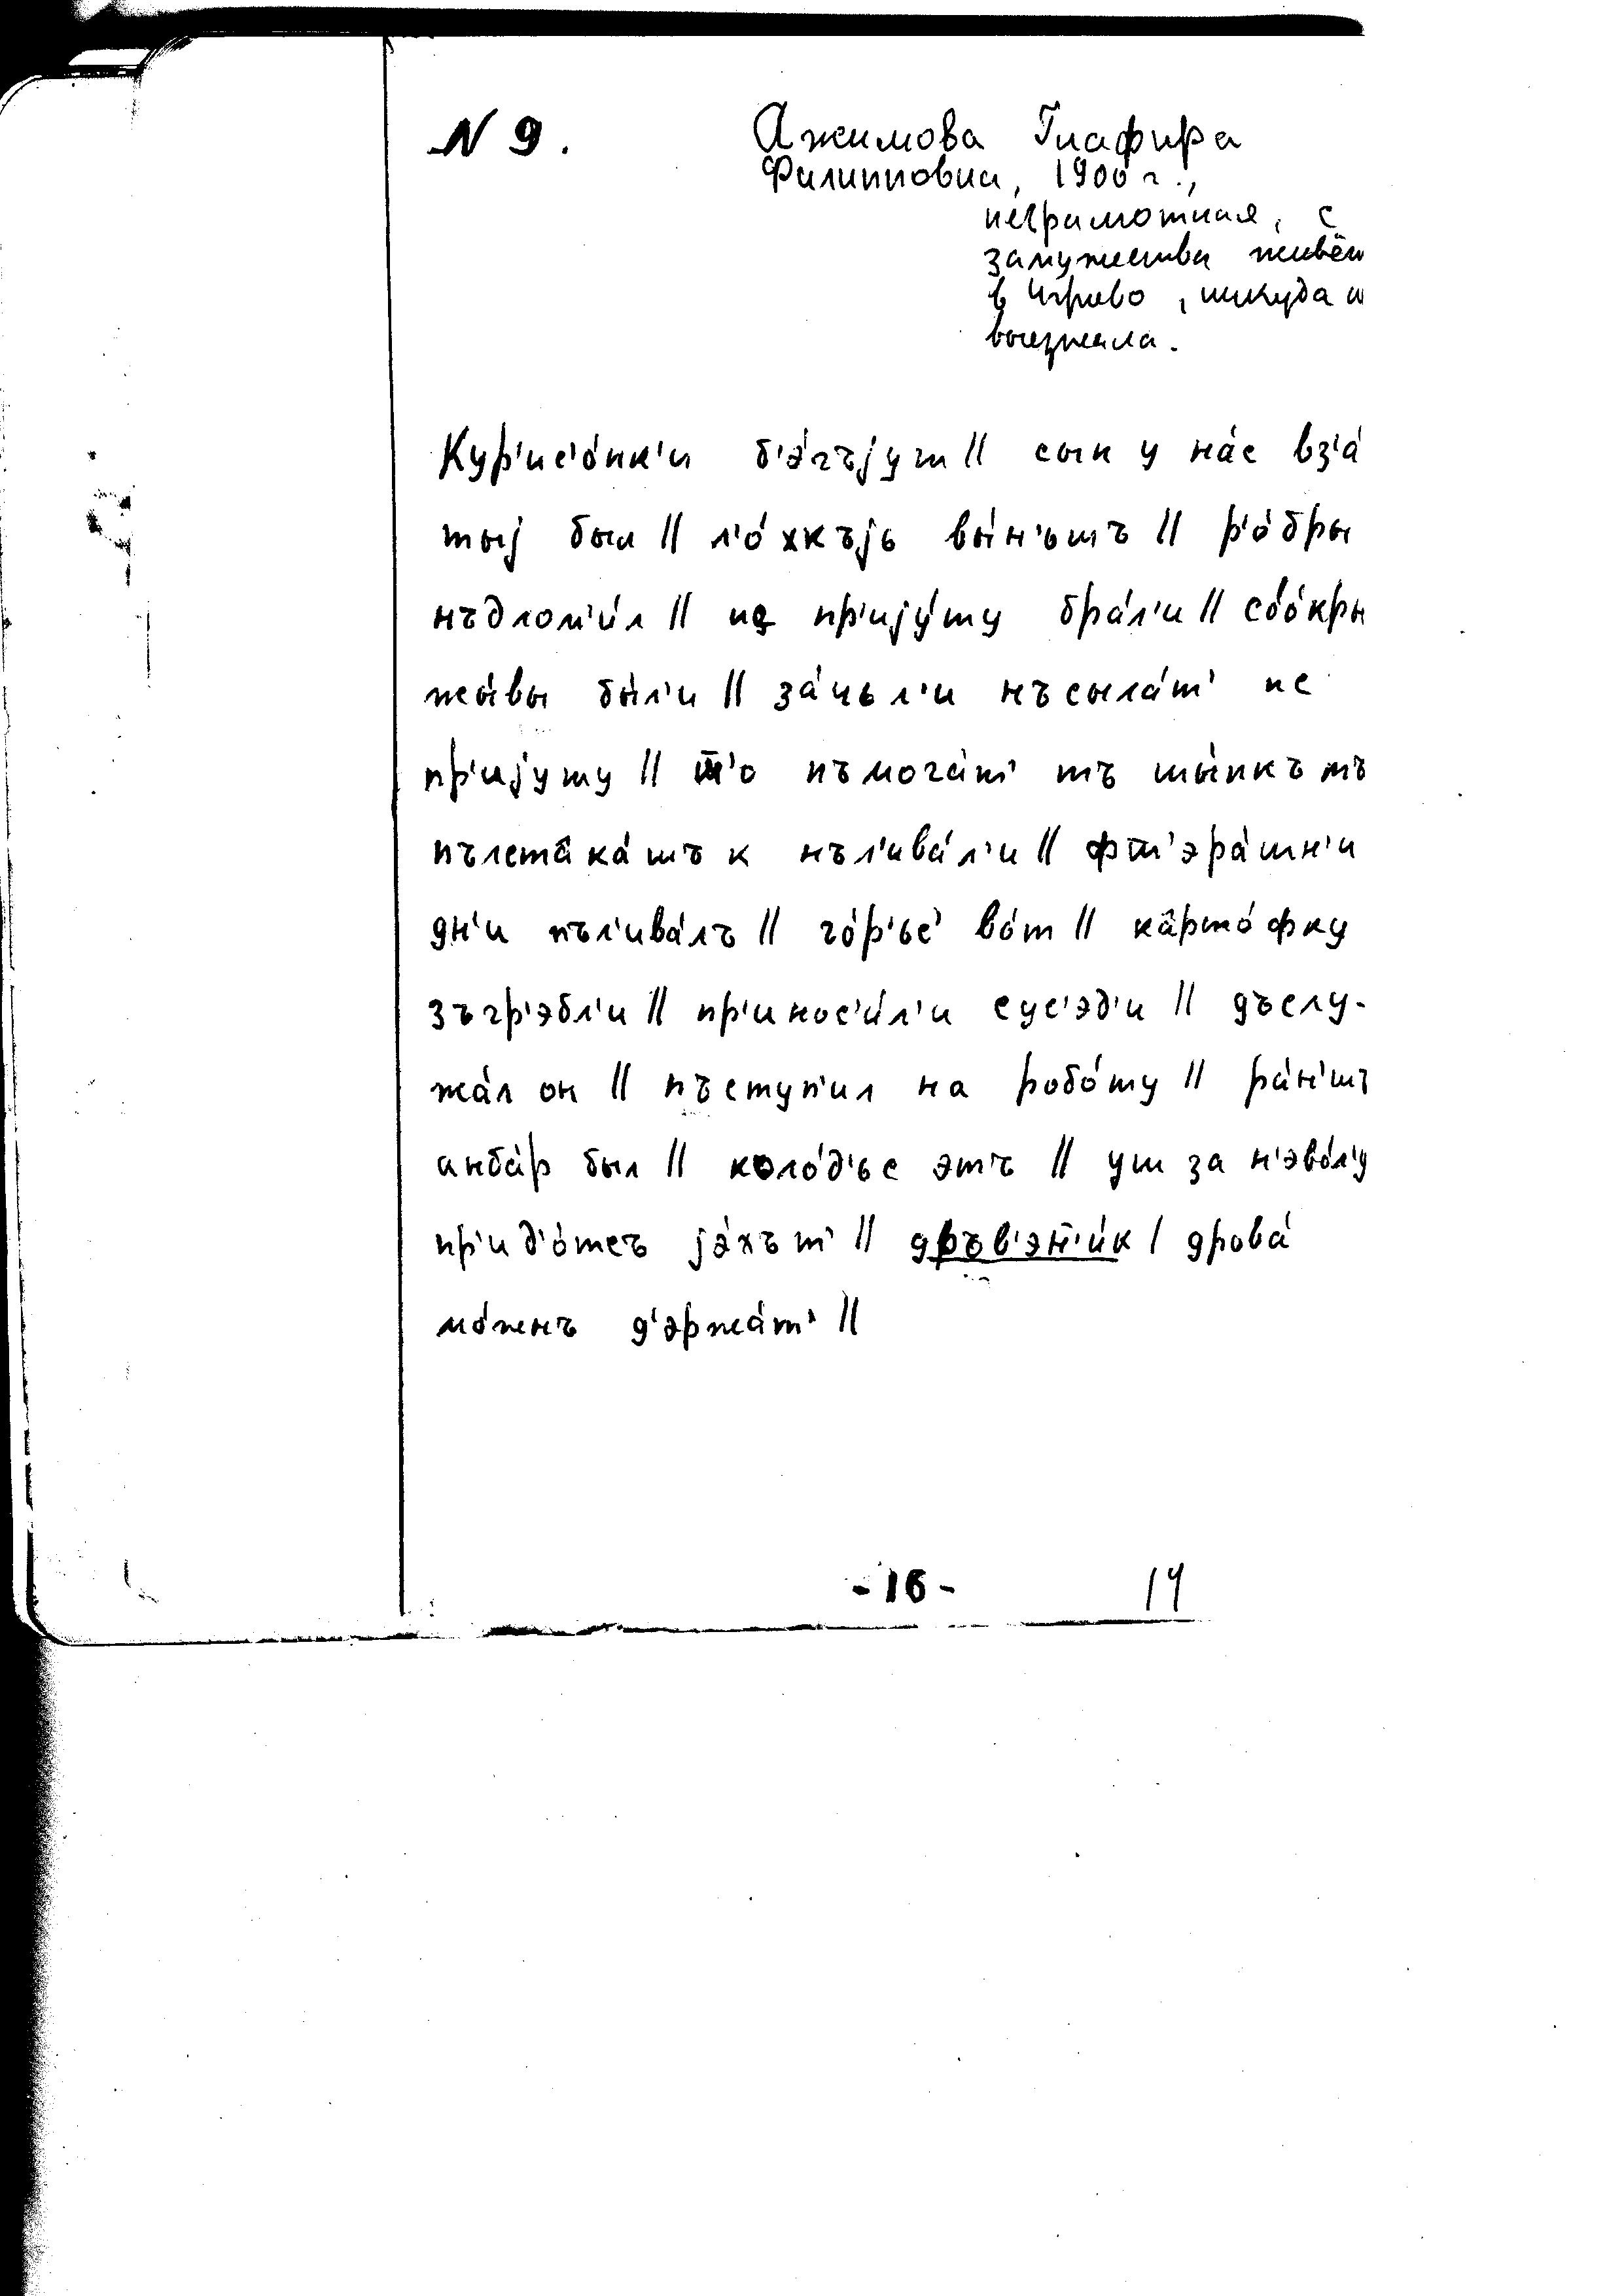 N 9. Ажимова Глафира
Филипповна, 1900 г.,
неграмотная, с
замужества живёт
в Игриво, никуда н
выезжала.
Кур'ис'о́нк'и б'э́гъjут || сын у на́с вз'а́
тыj был || л'о́хкъjь вы́н'ьтъ || р'о́бры
нъдлом'и́л || из пр'иjу́ту бра́л'и || сво́кры
жы́вы бы́л'и || за́чьл'и нъсыла́т' ис
пр'иjуту || т'о пъмога́т' тъ шы́пкъ тъ
нъл'ива́л'и || фт'эра́шн'и
дн'и пъл'ива́лъ || го́р'ье во́т || карто́фку
зъгр'эбл'и || пр'инос'и́л'и сус'эд'и || дъслу-
жа́л он || пъступ'ил на робо́ту || ра́н'шъ
анба́р был || коло́д'ье этъ || уш за н'эво́л'у
пр'ид'о́тсъ jэ́хът' || дръв'эн'и́к | дрова́
мо́жнъ д'эржа́т' ||
-16- 14